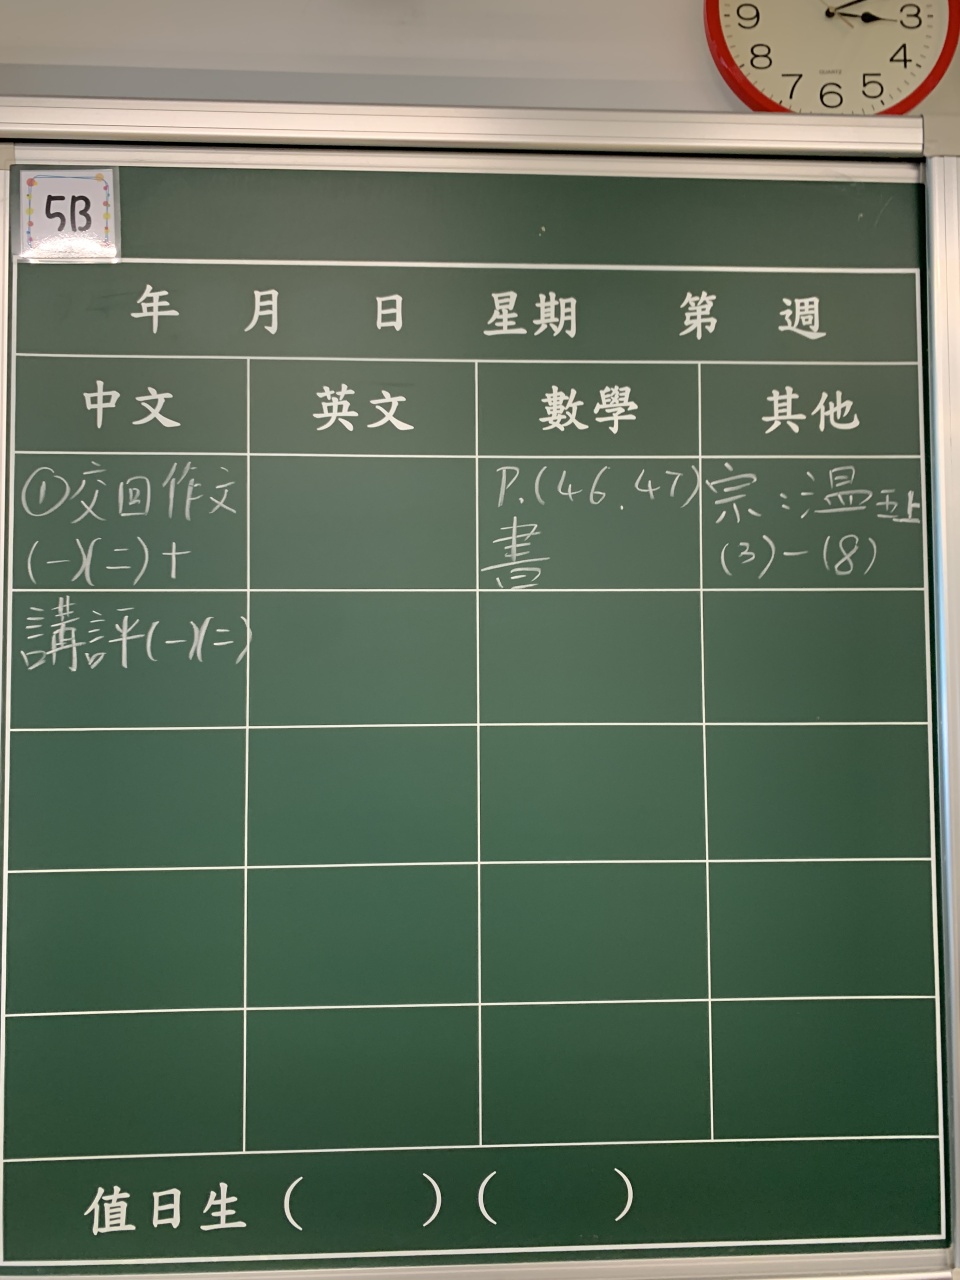 9 3
8 4
7 6 5
QUARTZ
5B
年 月 日 星期 第 週
中文 英文 數學 其他
①交回作文
(一)(二)+
講評(一)(二)
P.(46、47)
書
宗:溫五上
(3)-(8)
值日生 ( ) ( )